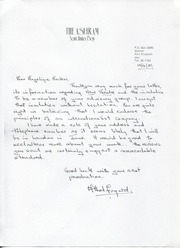 THE ASHRAM
Dear Angelique Rockas,
Thank you very much for your letter,
its information regarding and the invitation
to be a member of your advisory group. I accept
that invitation without hesitation. You are quite
right in believing that I would endorse the
principles of an internationalist company.
I have made a note of your address and
telephone number as it seems likely that I will
be in London in June. It would be good to
meet & talk more about your work. The reviews
you sent me certainly suggest a considerable
standard.
Good luck with your next
production.
Athol Fugard